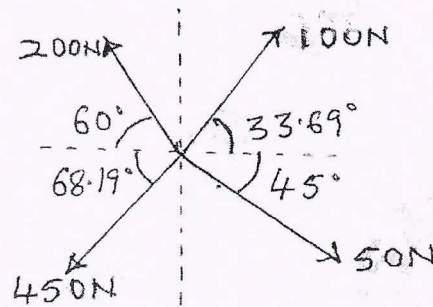 200N 100N
60° 33.69°
68.19° 45°
450N 50N